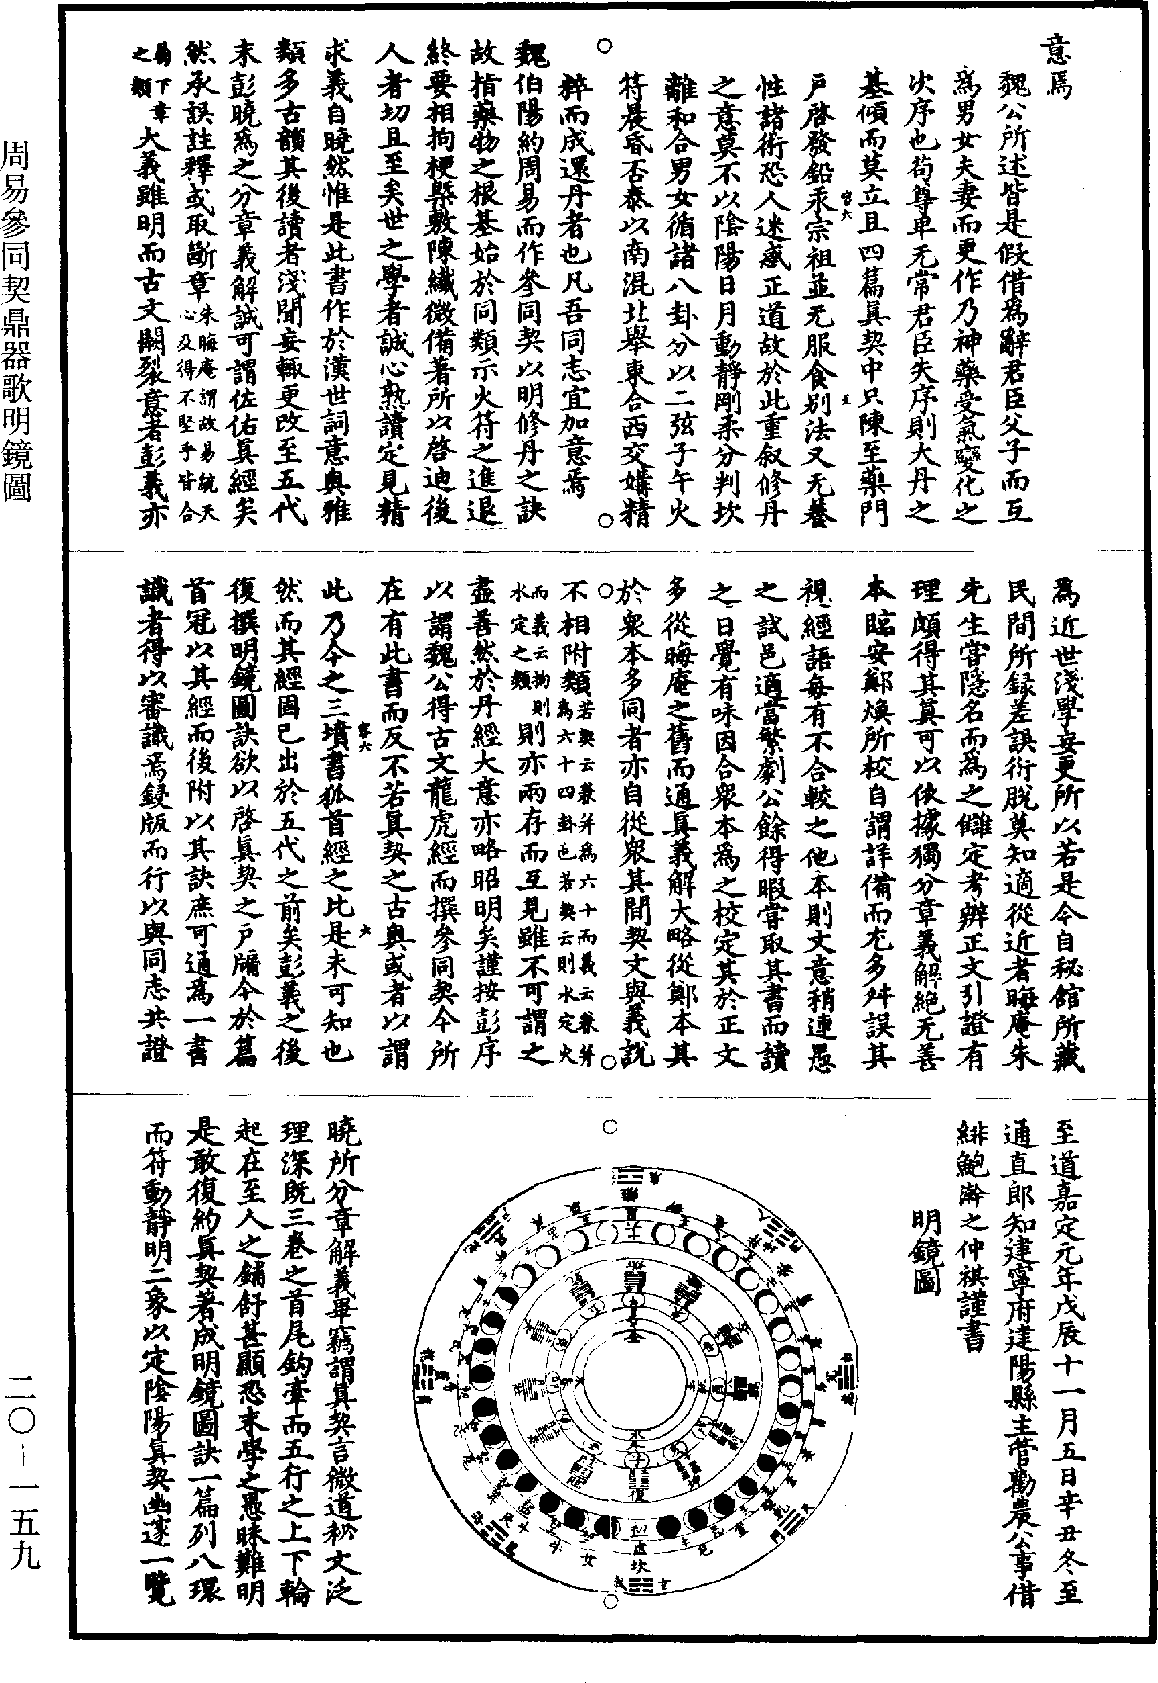 周易參同契鼎器歌明鏡圖
二〇—一五九
意焉
魏公所述皆是假借爲辭君臣父子而互
爲男女夫妻而更作乃神藥受氣變化之
次序也苟尊卑无常君臣失序則大丹之
基傾而莫立且四篇真契中只陳至藥門
戶啓發鉛汞宗祖並无服食別法又无養
性諸術恐人迷惑正道故於此重叙修丹
之意莫不以陰陽日月動靜剛柔分判坎
離和合男女循諸八卦分以二弦子午火
符晨昏否泰以南混北舉東合西交媾精
粹而成還丹者也凡吾同志宜加意焉
魏伯陽約周易而作參同契以明修丹之訣
故指藥物之根基始於同類示火符之進退
終要相拘梗槩敷陳纖微備著所以啓迪後
人者切且至矣世之學者誠心熟讀定見精
求義自曉然惟是此書作於漢世詞意奧雅
類多古韻其後讀者淺聞妄輒更改至五代
末彭曉爲之分章義解誠可謂佐佑真經矣
然承誤註釋或取斷章朱晦庵謂故易統天心及得不堅乎皆合
爲下章之類大義雖明而古文闕裂意者彭義亦
爲近世淺學妄更所以若是今自秘館所藏
民間所録差誤衍脫莫知適從近者晦庵朱
先生嘗隱名而為之讎定考辨正文引證有
理頗得其真可以依據獨分章義解絕无善
本臨安鄭煥所校自謂詳備而尤多舛誤其
視經語每有不合較之他本則文意稍連愚
之試邑適當繁劇公餘得暇嘗取其書而讀
之日覺有味因合衆本爲之校定其於正文
多從晦庵之舊而通真義解大略從鄭本其
於衆本多同者亦自從衆其間契文與義說
不相附類若契云兼并爲六十而義云兼并爲六十四卦也若契云則水定火
而義云拘則水定之類則亦兩存而互見雖不可謂之
盡善然於丹經大意亦略昭明矣謹按彭序
以謂魏公得古文龍虎經而撰參同契今所
在有此書而反不若真契之古奧或者以謂
此乃今之三墳書狐首經之比是未可知也
然而其經固已出於五代之前矣彭義之後
復撰明鏡圖訣欲以啓真契之戶牖今於篇
首冠以其經而後附以其訣庶可通爲一書
識者得以審識焉鋟版而行以與同志共證
至道嘉定元年戊辰十一月五日辛丑冬至
通直郎知建寧府建陽縣主管勸農公事借
緋鮑澣之仲祺謹書
明鏡圖
復
虛
坎
女
曉所分章解義畢竊謂真契言微道秘文泛
理深既三卷之首尾鈎牽而五行之上下輪
起在至人之鋪舒甚顯恐末學之愚昧難明
是敢復約真契著成明鏡圖訣一篇列八環
而符動靜明二象以定陰陽真契幽邃一覽